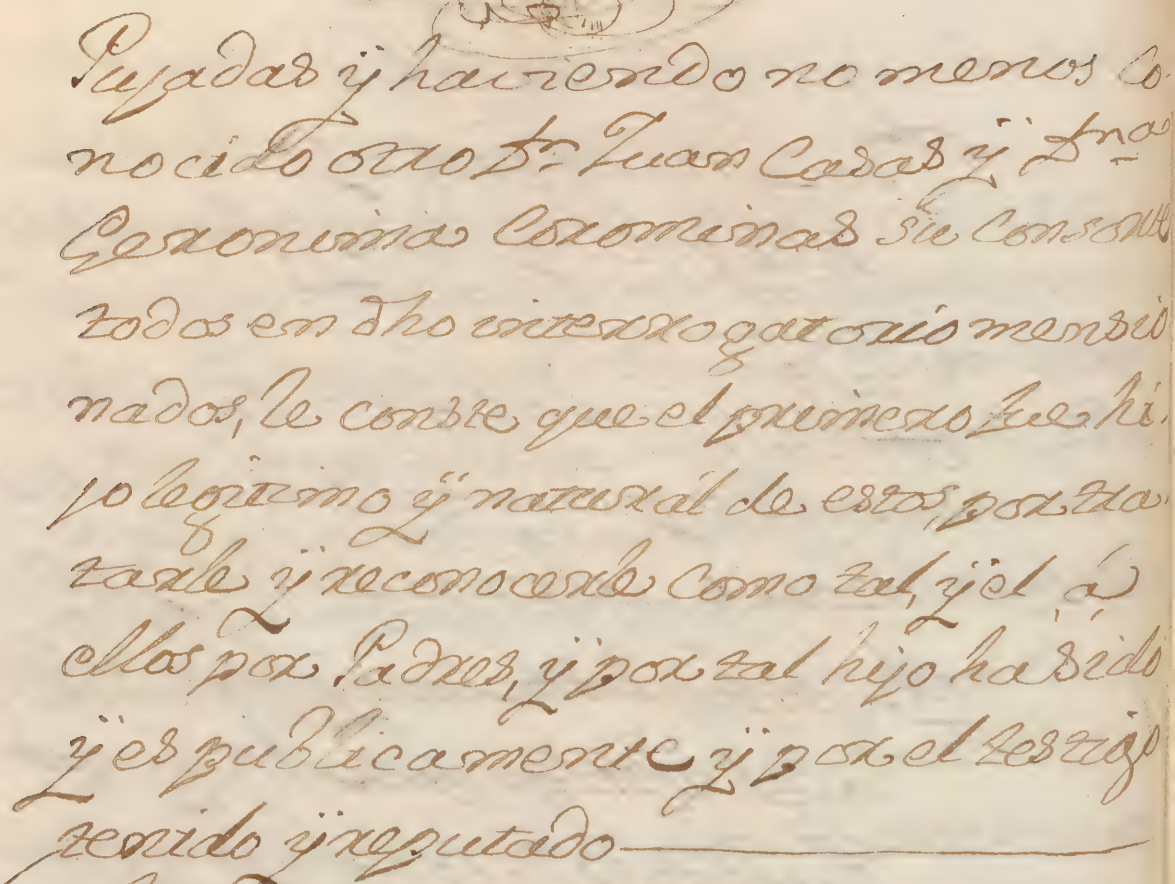 Pujadas ÿ haviendo no menos co
nocido otro Dn. Juan Casas ÿ Dna.
Geronima Corominas su consorte
todos en dho interrogatorio mensio
nados, le conste que el primero fue hi
jo legitimo ÿ naturál de estos, por tra
tarle ÿ reconocerle como tal, ÿ el á
ellos por Padres, ÿ por tal hijo ha sido
ÿ es publicamente ÿ por el testigo
tenido ÿ reputado